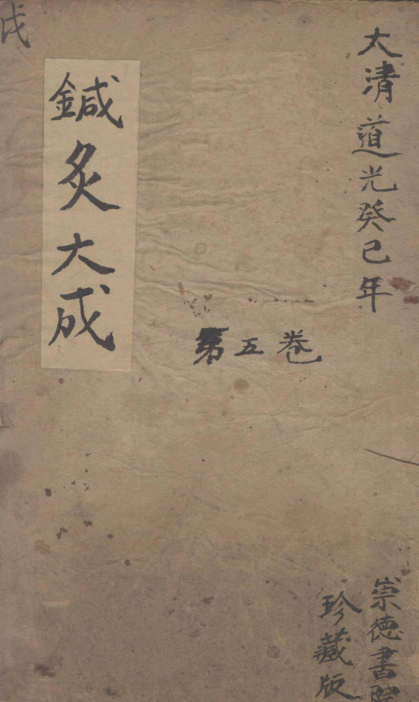 大清道光癸巳年
鍼灸大成
第五卷
崇德書院
珍藏版